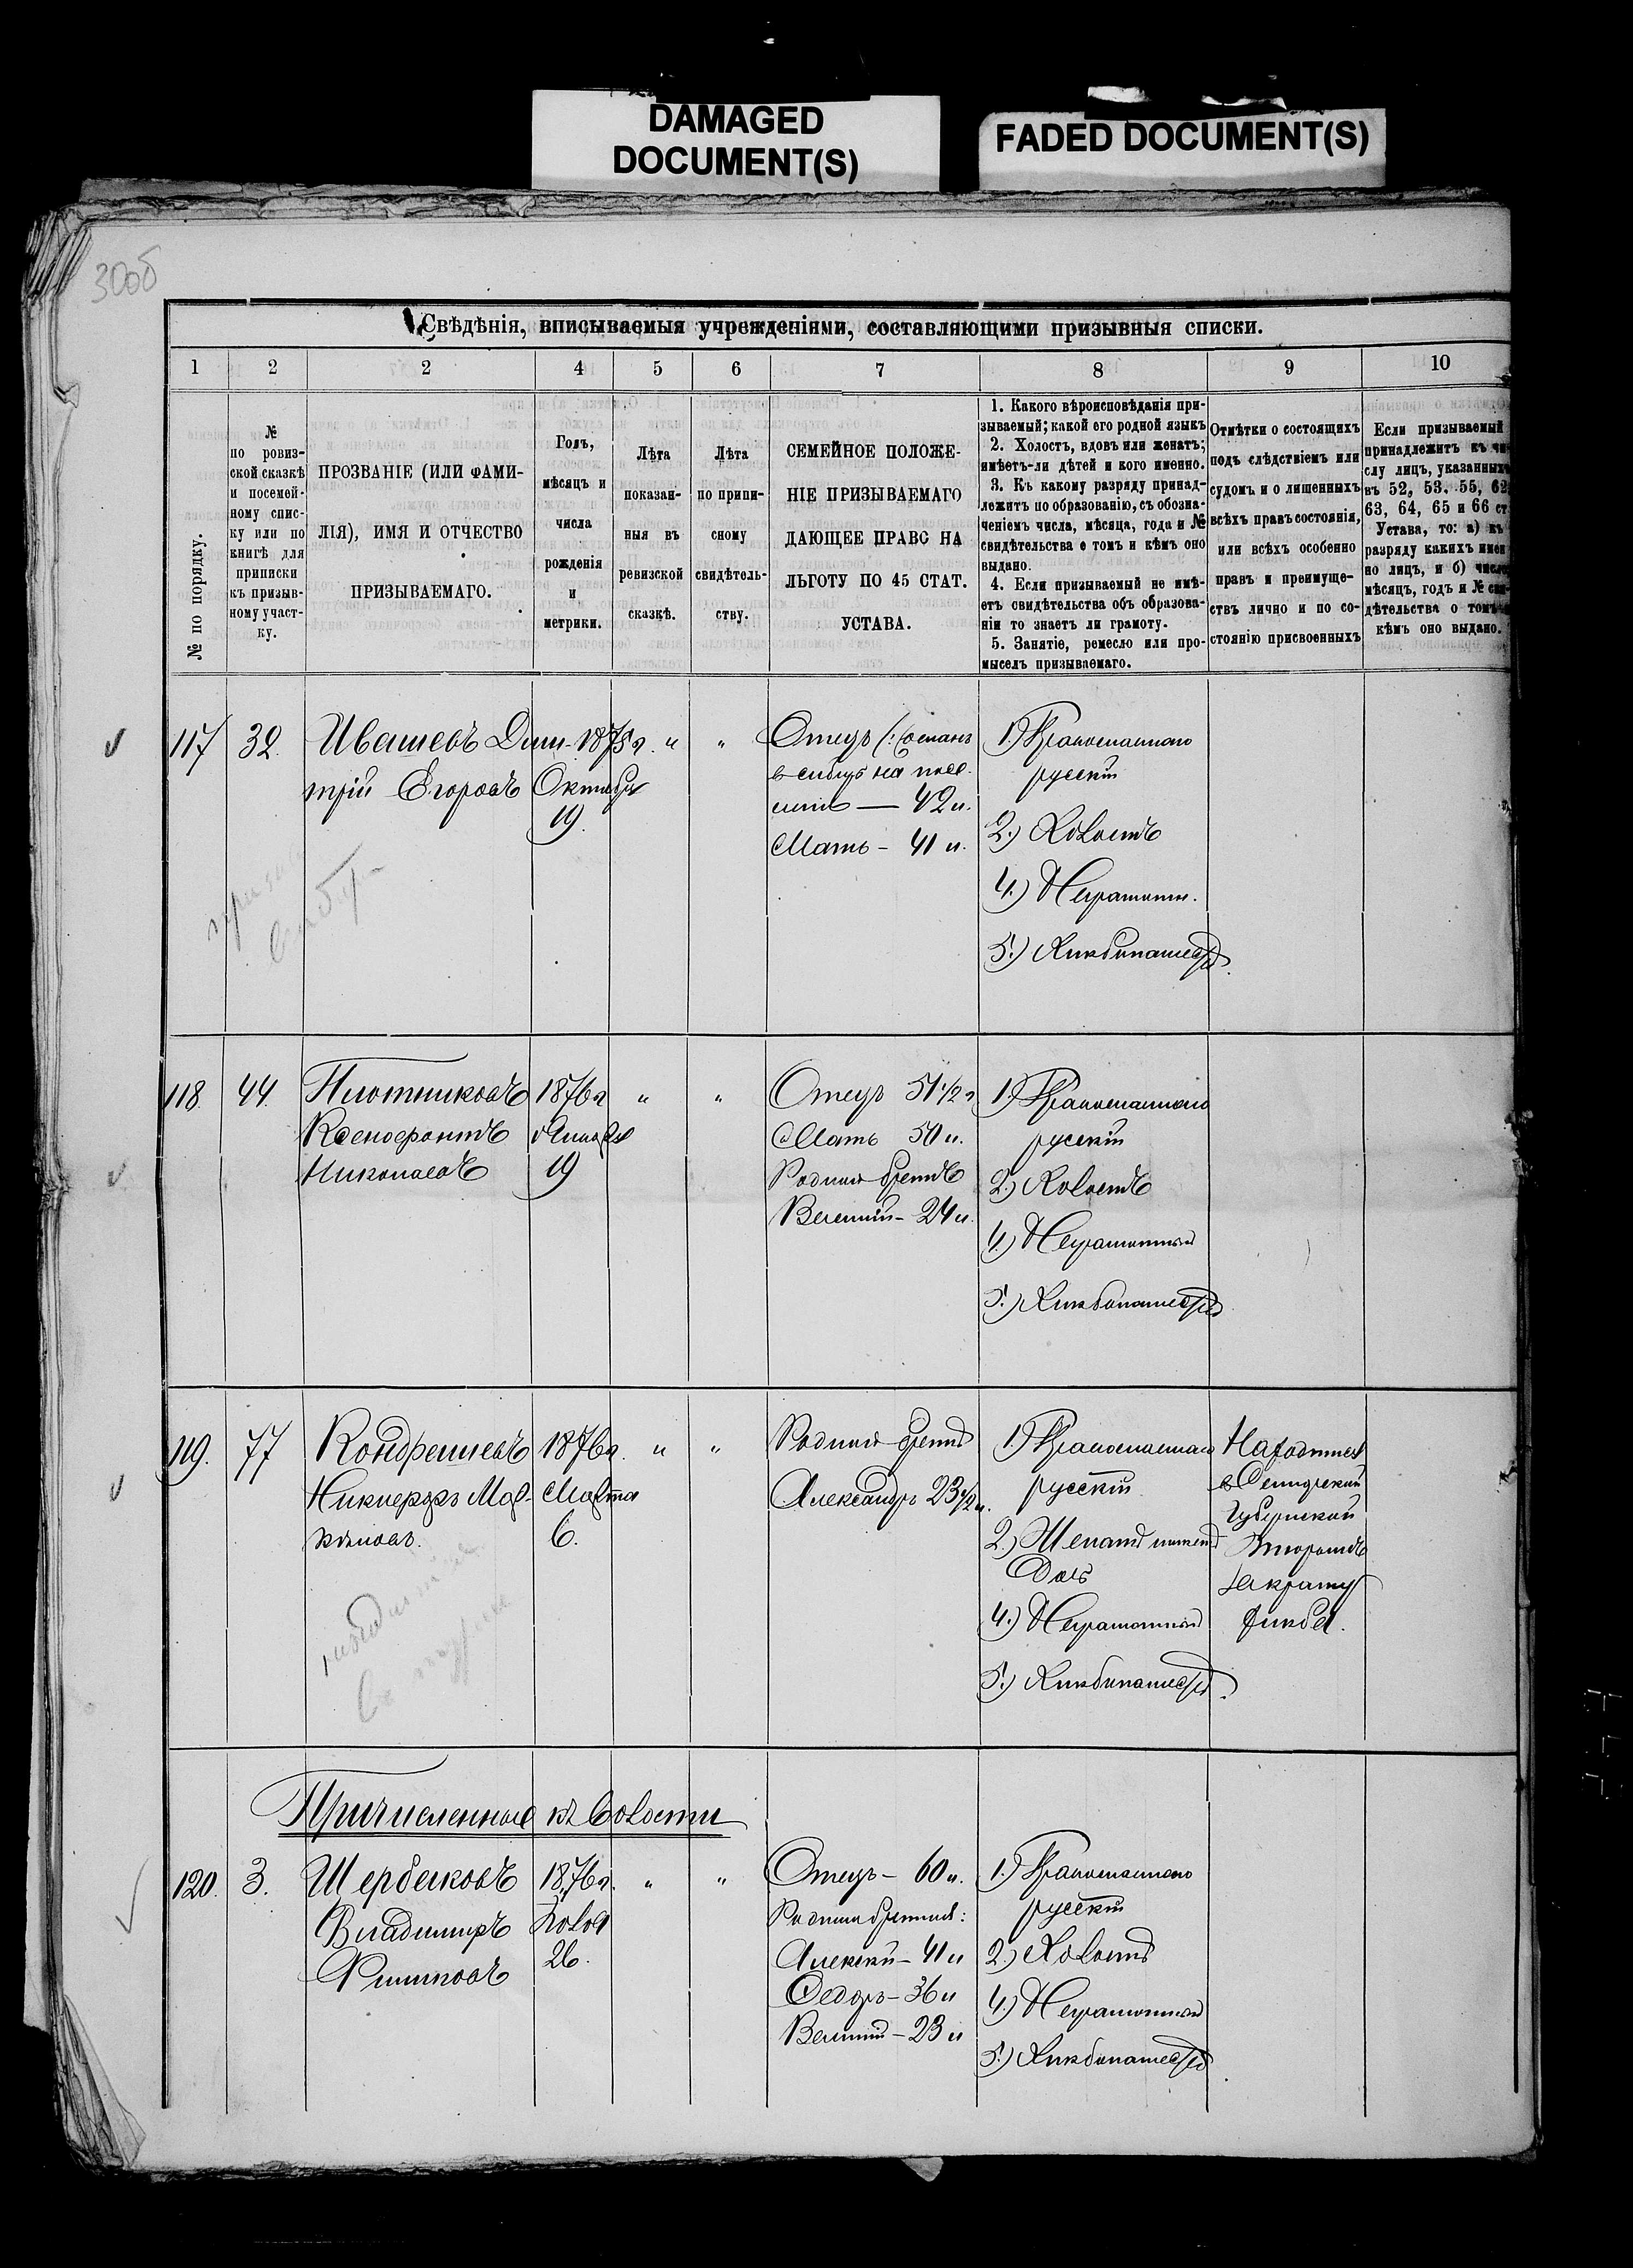 DAMAGED
DOCUMENT(S)
FADED DOCUMENT(S)
300б
Свѣдѣнія, вписываемыя учрежденіями, составляющими призывныя списки.
1 2 2 4 5 6 7 8 9 10
№ по порядку.
№
по ровиз-
ской сказкѣ
и посемей-
ному спис-
ку или по
книгѣ для
приписки
къ призыв-
ному участ-
ку.
ПРОЗВАНІЕ (ИЛИ ФАМИ-
ЛІЯ), ИМЯ И ОТЧЕСТВО
ПРИЗЫВАЕМАГО.
Годъ,
мѣсяцъ и
числа
рожденія
и
метрики.
Лѣта
показан-
ныя въ
ревизской
сказкѣ.
Лѣта
по припи-
сному
свидѣтель-
ству.
СЕМЕЙНОЕ ПОЛОЖЕ-
НІЕ ПРИЗЫВАЕМАГО
ДАЮЩЕЕ ПРАВО НА
ЛЬГОТУ ПО 45 СТАТ.
УСТАВА.
1. Какого вѣроисповѣданія при-
зываемый; какой его родной языкъ
2. Холостъ, вдовъ или женатъ;
имѣетъ-ли дѣтей и кого именно.
3. Къ какому разряду принад-
лежитъ по образованію, съ обозна-
ченіемъ числа, мѣсяца, года и №
свидѣтельства о томъ и кѣмъ оно
выдано.
4. Если призываемый не имѣ-
етъ свидѣтельства объ образова-
ніи то знаетъ ли грамоту.
5. Занятіе, ремесло или про-
мыселъ призываемаго.
Отмѣтки о состоящихъ
подъ слѣдствіемъ или
судомъ и о лишенныхъ
всѣхъ правъ состоянія,
или всѣхъ особенно
правъ и преимуще-
ствъ лично и по со-
стоянію присвоенныхъ
Если призываемый
принадлежитъ къ чи-
слу лицъ, указанныхъ
въ 52, 53, 55, 62,
63, 64, 65 и 66 ст.
Устава, то: а) къ
разряду какихъ имен-
но лицъ, и б) число,
мѣсяцъ, годъ и № сви-
дѣтельства о томъ и
кѣмъ оно выдано.
117 32. Ивашевъ Дми-
трій Егоровъ
1875 г.
Октября
19.
" "
Отецъ (: сосланъ
в сибирь на посе-
— 42 л.
Мать - 41 л.
1.) Православнаго
русскій
2.) Холостъ
4.) Неграмотн.
5.) Хлѣбопашест.
118. 44. Плотниковъ
Ксенофонтъ
Николаевъ
1876 г
Января
19
" "
Отецъ 51 1/2 л
Мать 50 л.
Родной братъ
Василій - 24 л.
1.) Православнаго
русскій
2.) Холостъ
4.) Неграмотный
5.) Хлѣбопашест.
119. 77 Кондрашевъ
Никифоръ Мар-
1876 г.
Марта
6.
" "
Родной братъ
Александръ 23 1/2 л.
1.) Православнаго
русскій
2.) Женатъ имеетъ
Дочь
4.) Неграмотный
5.) Хлѣбопашест.
Находится
в
Губернской
за кражу
хлѣба.
Причисленные къ волости
120. 3. Щербаковъ
Владимиръ
Филиповъ
1876 г.
Іюля
26.
" "
Отецъ - 60 л.
Родныя братья:
Алексѣй - 41 л
Федоръ - 36 л
Василій - 23 л
1.) Православнаго
русскій
2.) Холостъ
4.) Неграмотный
5.) Хлѣбопашест.